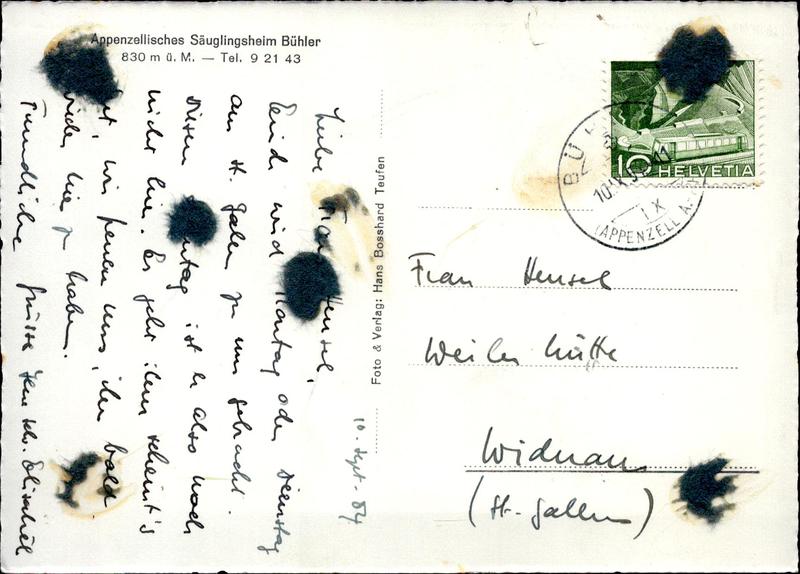 Appenzellisches Säuglingsheim Bühler
830 m ü. M. — Tel. 9 21 43
Liebe Frau Hensel,
wird Montag oder Dienstag
aus St. Galen zu uns gebracht.
Diesen Sonntag ist er also noch
nicht hier. Es geht ihm scheint's
gut, wir freuen uns, ihn bald
wieder hier zu haben.
Freundliche Grüsse
10. Sept. 54
Foto & Verlag: Hans Bosshard Teufen
10 HELVETIA
BÜ
(APPENZELL A.-
Frau Hensel
Weiler Hütte
Widnau
(St. Gallen)